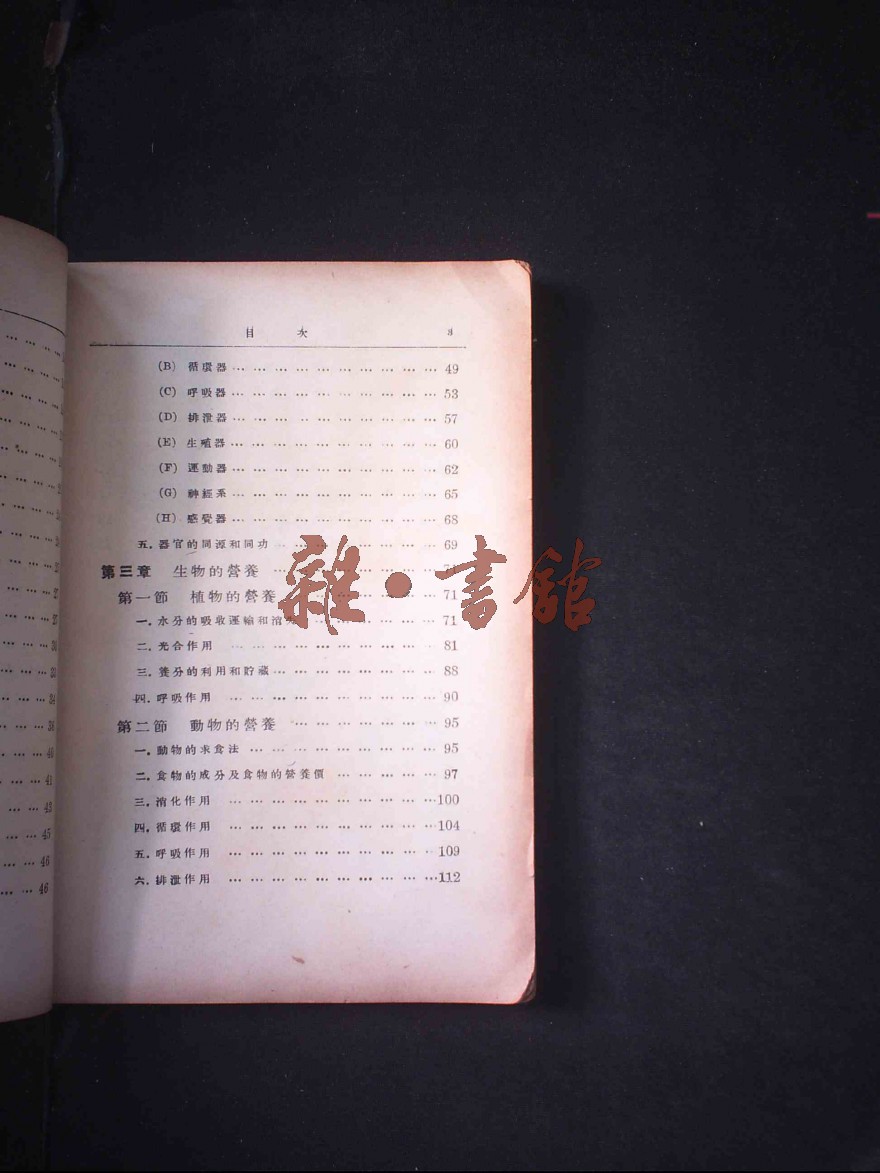 目次 3
(B) 循環器 … … … … … … … … … … 49
(C) 呼吸器 … … … … … … … … … … 53
(D) 排泄器 … … … … … … … … … … 57
(E) 生殖器 … … … … … … … … … … 60
(F) 運動器 … … … … … … … … … … 62
(G) 神經系 … … … … … … … … … … 65
(H) 感覺器 … … … … … … … … … … 68
五.器官的同源和同功 … … … … … … … … 69
第三章 生物的營養 … … … … … … … …
第一節 植物的營養 … … … … … … … … 71
一.水分的吸收運輸和 … … … … … … 71
二.光合作用 … … … … … … … … … … 81
三.養分的利用和貯藏 … … … … … … … … 88
四.呼吸作用 … … … … … … … … … … 90
第二節 動物的營養 … … … … … … … 95
一.動物的求食法 … … … … … … … … … 95
二.食物的成分及食物的營養價 … … … … … 97
三.消化作用 … … … … … … … … … …100
四.循環作用 … … … … … … … … … …104
五.呼吸作用 … … … … … … … … … …109
六.排泄作用 … … … … … … … … … …112
雜·書館
40
41
43
45
46
46